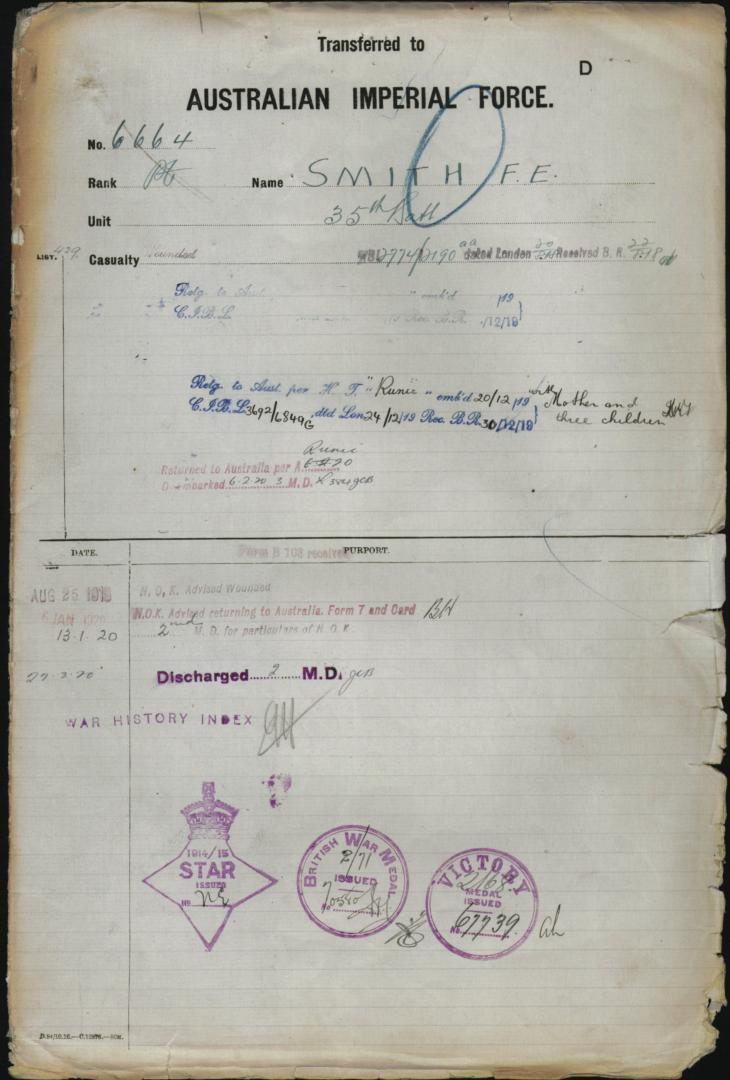 Transferred to
D
AUSTRALIAN IMPERIAL FORCE.
No. 6664
Rank Pte Name SMITH F.E.
Unit 35th Batt
LIST. 429 Casualty Wounded 2774/2190 aa dated London Received B. R.
Retg. to Aust emb'd /19
C.I.B.L. Rec. B.R. /12/19
Retg. to Aust. per H. T. "Runic" emb'd 20/12/19 with Mother and
C.I.B.L. 3692/6849G dtd Lon 24/12/19 Rec. B.R. 30/12/19 three children
Runic
Returned to Australia per A
Disembarked 6.2.20 3 M.D.
DATE. PURPORT.
Form B 103 received
AUG 25 1918 N.O.K. Advised Wounded
6 JAN 1920 N.O.K. Advised returning to Australia. Form 7 and Card BH
13.1.20 2nd M. D. for particulars of N. O. K.
27.3.20 Discharged 2 M.D.
WAR HISTORY INDEX
1914/15
STAR
ISSUED
No NE
BRITISH WAR MEDAL
2/71
ISSUED
No
VICTORY
2/68
MEDAL
ISSUED
No. 67739
ah